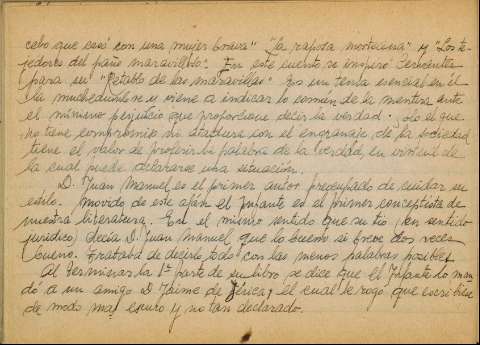 cebo que casó con una mujer brava" "la raposa mortecina" y "Los te-
jedores del paño maravilloso". En este cuento se inspiró Cervantes
para su "Retablo de las maravillas" Es un tenta esencial en él
la muchedumbre y viene a indicar lo común de la mentira ante
el mínimo perjuicio que proporcione decir la verdad. Sólo el que
no tiene compromiso ni atadura con el engranaje de la sociedad
tiene el valor de proferir la palabra de la verdad en virtud de
la cual puede aclararse una situación.
D. Juan Manuel es el primer autor preocupado de cuidar su
estilo. Movido de este afán el Infante es el primer conceptista de
nuestra literatura. En el mismo sentido que su tío (en sentido
jurídico) decía D. Juan Manuel que lo bueno si breve dos veces
bueno. Trataba de decirlo todo con las menos palabras posibles
Al terminar la 1ª parte de su libro se dice que el Infante lo man
dó a un amigo D Jaime de Jérica, el cual le rogó que escribiese
de modo mas oscuro y no tan declarado.